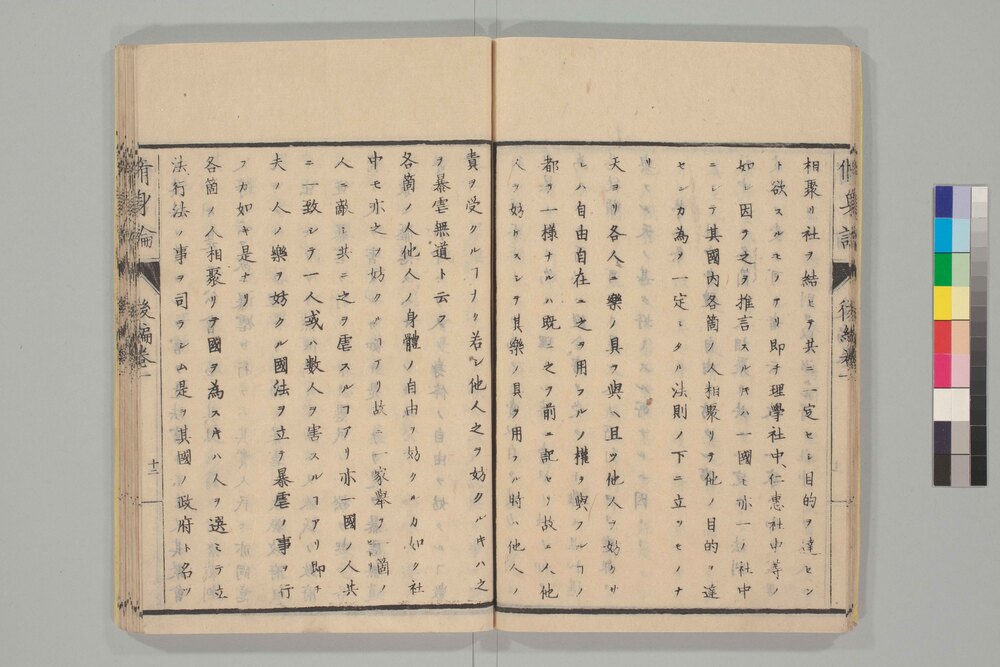 相聚リ社ヲ結ヒテ其ニ一定セシ目的ヲ達セン
ト欲スルモノナリ即チ理學社中、仁惠社中等ノ
如シ因テ之ヲ推言スルキハ一國モ亦一ノ社中
ニシテ其國内各箇ノ人相聚リテ他ノ目的ヲ達
センカ為ヲ一定シタル法則ノ下ニ立ツモノナ
リ
天ヨリ各人ニ樂ノ具ヲ與ヘ且ツ他人ヲ妨ケサ
レハ自由自在ニ之ヲ用フルノ權ヲ與フルヿノ
都テ一様ナルハ既ニ之ヲ前ニ記セリ故ニ人他
人ヲ妨トスシテ其樂ノ具ヲ用フル時ハ他人ノ
責ヲ受クルヿナク若シ他人之ヲ妨クルキハ之
ヲ暴虐無道ト云フ
各箇ノ人他人ノ身體ノ自由ヲ妨クルカ如ク社
中モ亦之ヲ妨クルヿアリ故ニ一家舉テ一箇ノ
人ニ敵シ共ニ之ヲ虐スルヿアリ亦一國ノ人共
ニ一致シテ一人或ハ數人ヲ害スルヿアリ即チ
夫ノ人ノ樂ヲ妨クル國法ヲ立テ暴虐ノ事ヲ行
フカ如キ是ナリ
各箇ノ人相聚リテ國ヲ為スキハ人ヲ選ミテ立
法行法ノ事ヲ司ラシム是ヲ其國ノ政府ト名ツ
脩身論
後編卷一
十二